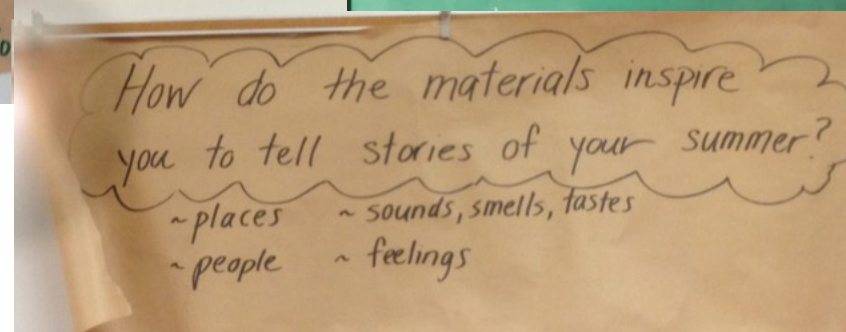 How do the materials inspire
you to tell stories of your summer?
~places ~ sounds, smells, tastes
~people ~ feelings